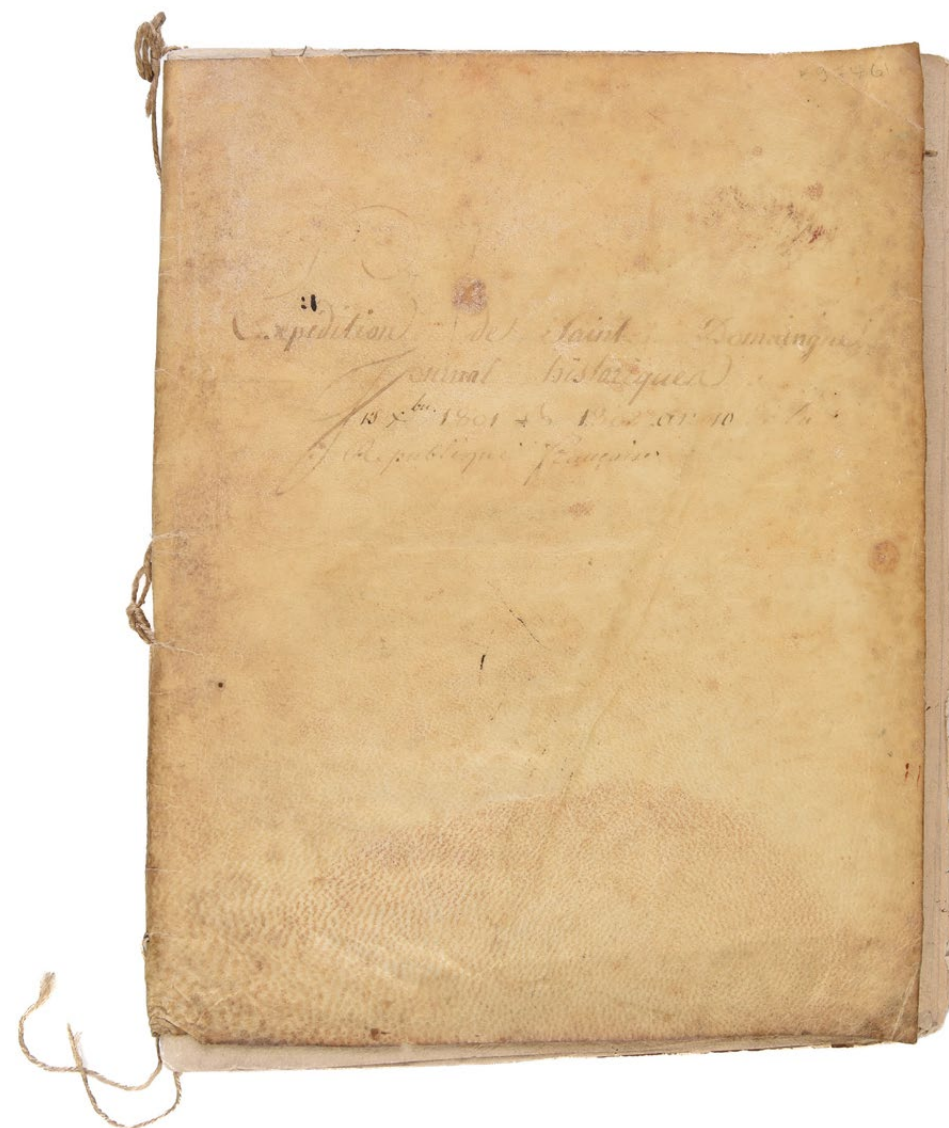 Expédition de Saint Domaingue
Journal historique
13 Xbre. 1801 1802 an 10 la
République Française